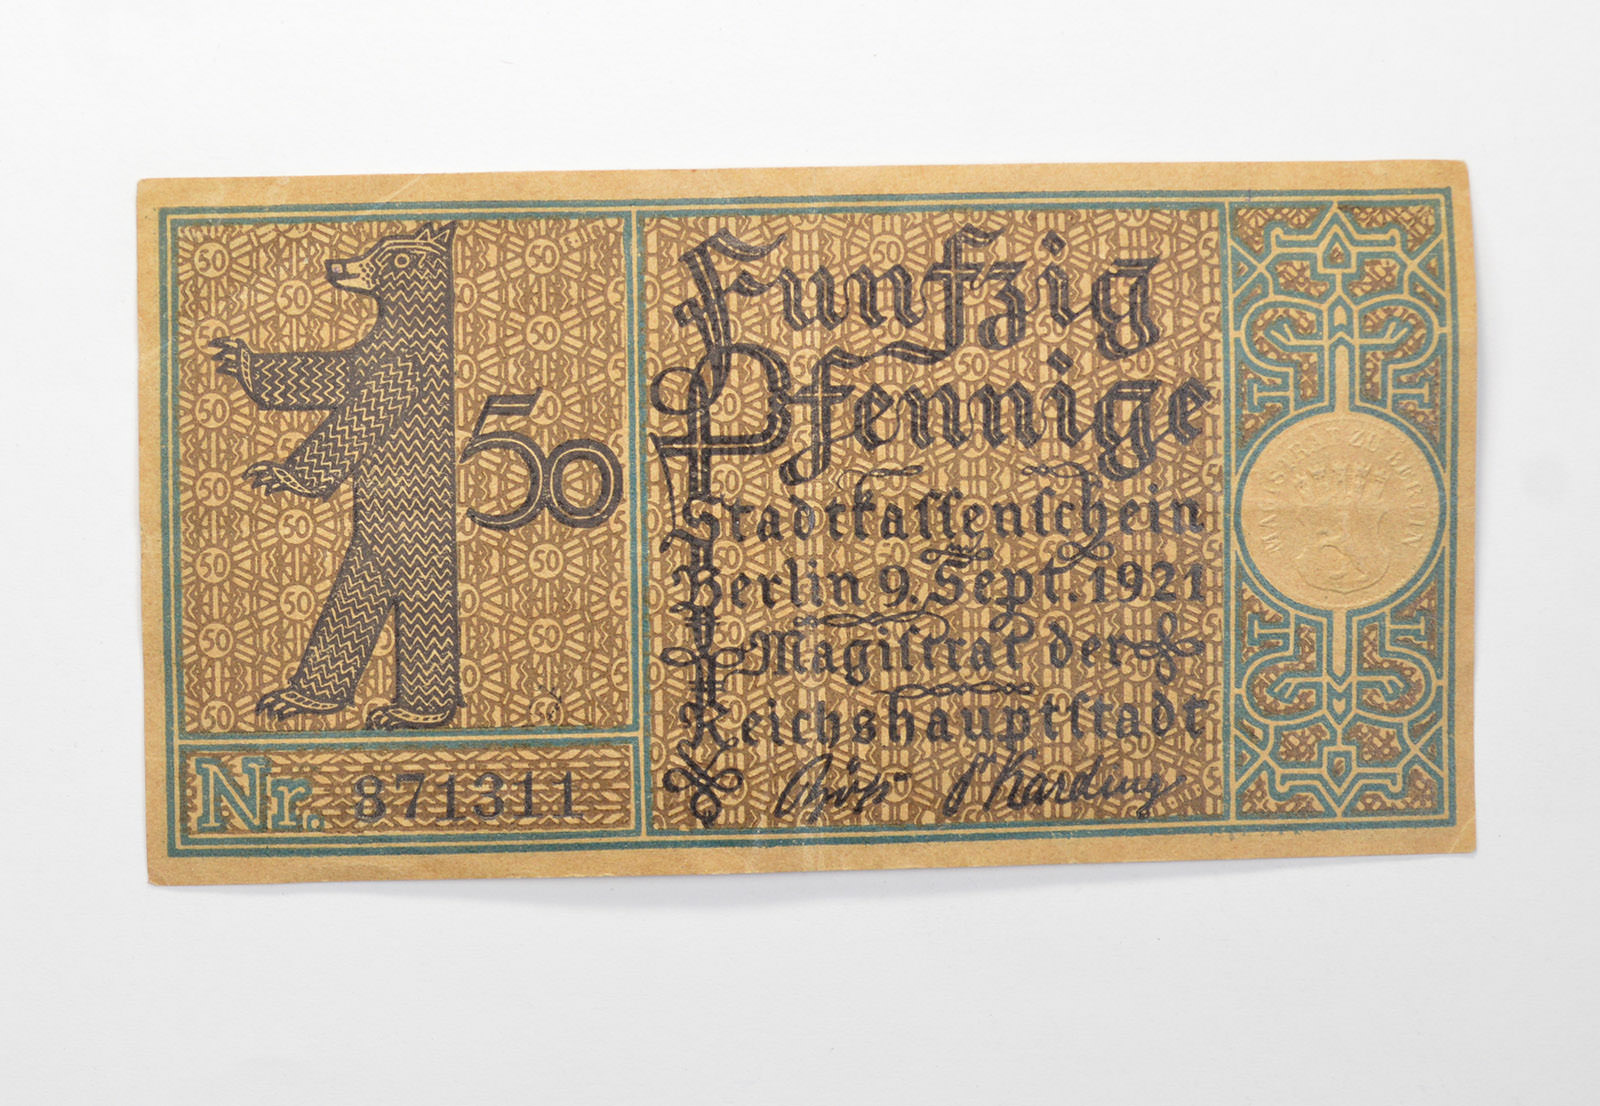 50
Funfzig
Pfennige
Stadtkaſſenſchein
Berlin 9. Sept. 1921
Magiſtrat der
Reichshauptſtadt
Nr. 871311
MAGISTRAT ZU BERLIN